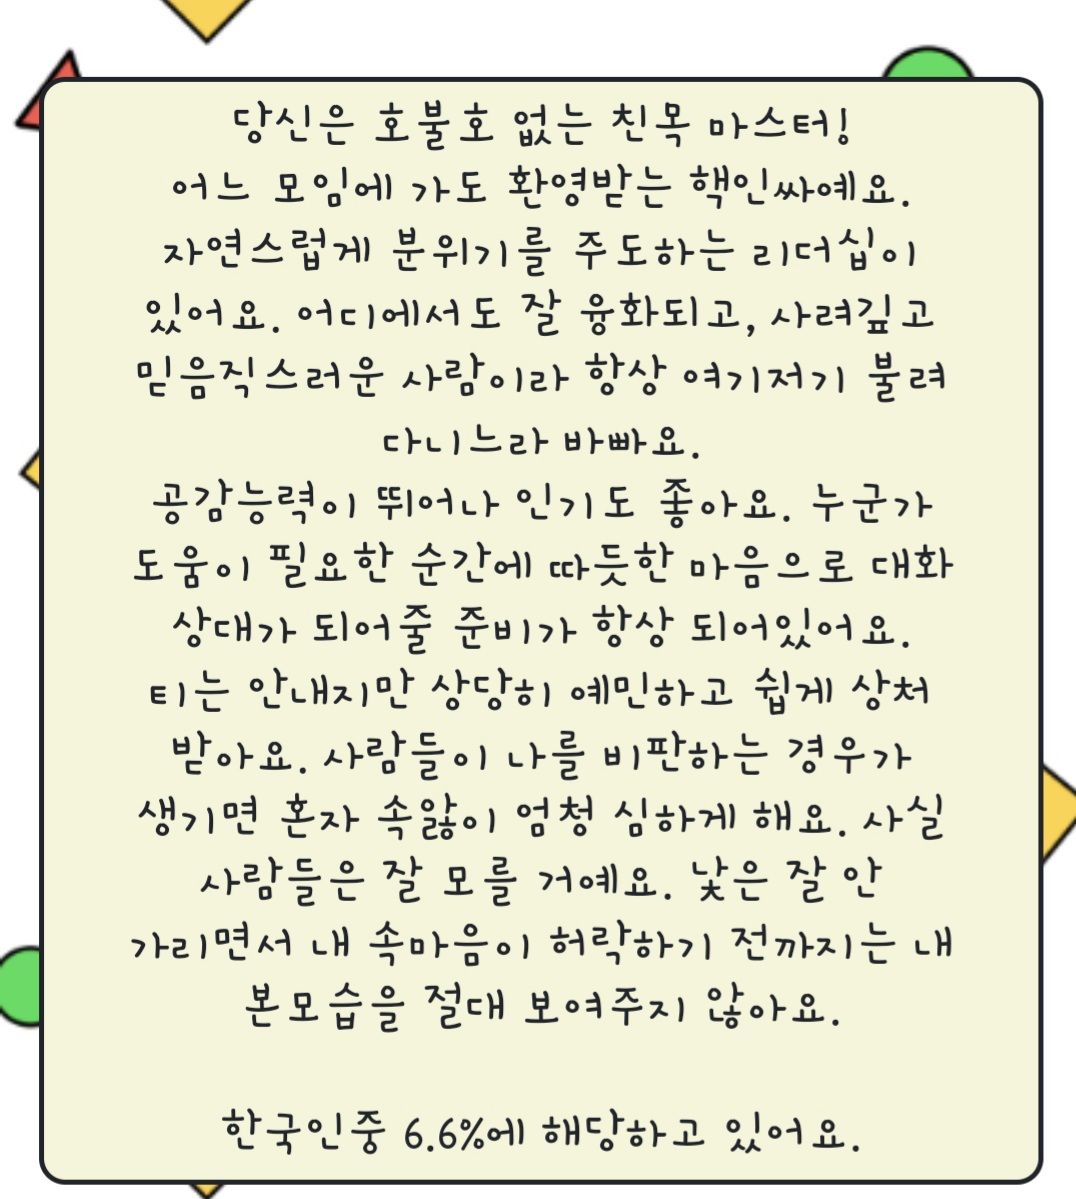 당신은 호불호 없는 친목 마스터!
어느 모임에 가도 환영받는 핵인싸예요.
자연스럽게 분위기를 주도하는 리더십이
있어요. 어디에서도 잘 융화되고, 사려깊고
믿음직스러운 사람이라 항상 여기저기 불려
다니느라 바빠요.
공감능력이 뛰어나 인기도 좋아요. 누군가
도움이 필요한 순간에 따듯한 마음으로 대화
상대가 되어줄 준비가 항상 되어있어요.
티는 안내지만 상당히 예민하고 쉽게 상처
받아요. 사람들이 나를 비판하는 경우가
생기면 혼자 속앓이 엄청 심하게 해요. 사실
사람들은 잘 모를 거예요. 낯은 잘 안
가리면서 내 속마음이 허락하기 전까지는 내
본모습을 절대 보여주지 않아요.
한국인중 6.6%에 해당하고 있어요.